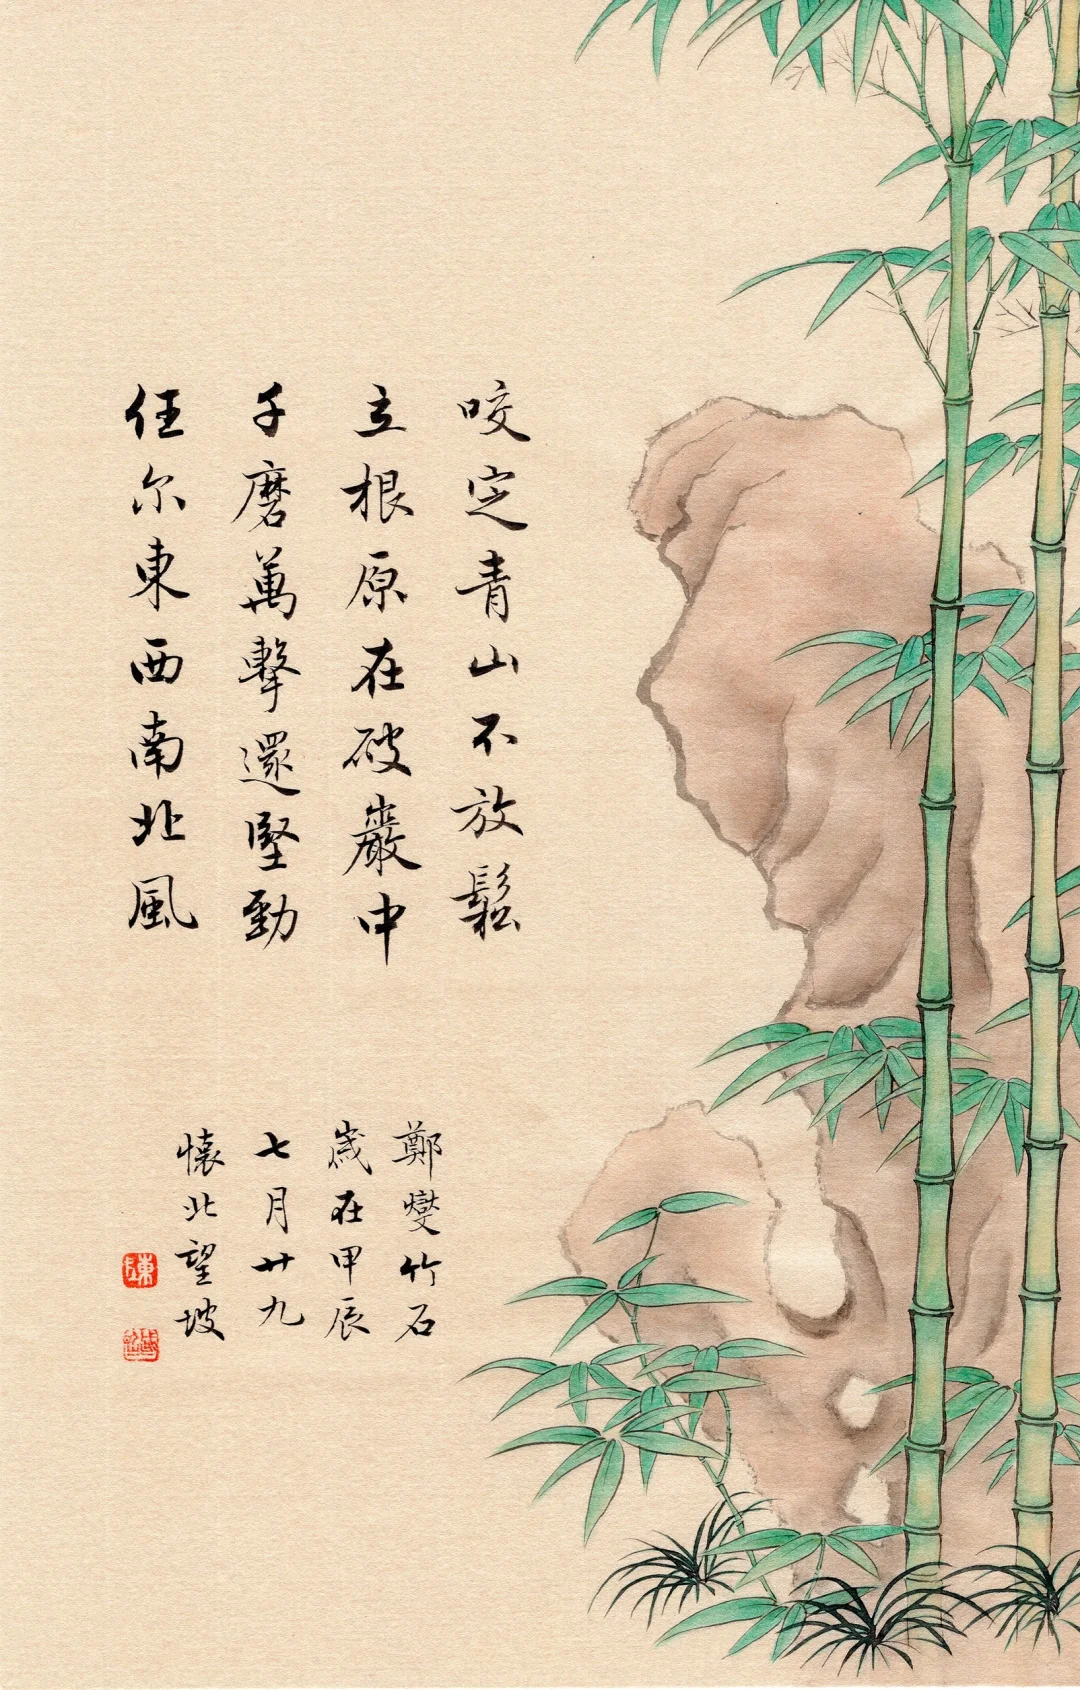 咬定青山不放鬆
立根原在破巖中
千磨萬擊還堅勁
任尔東西南北風
鄭燮竹石
歲在甲辰
七月廿九
懷北望坡